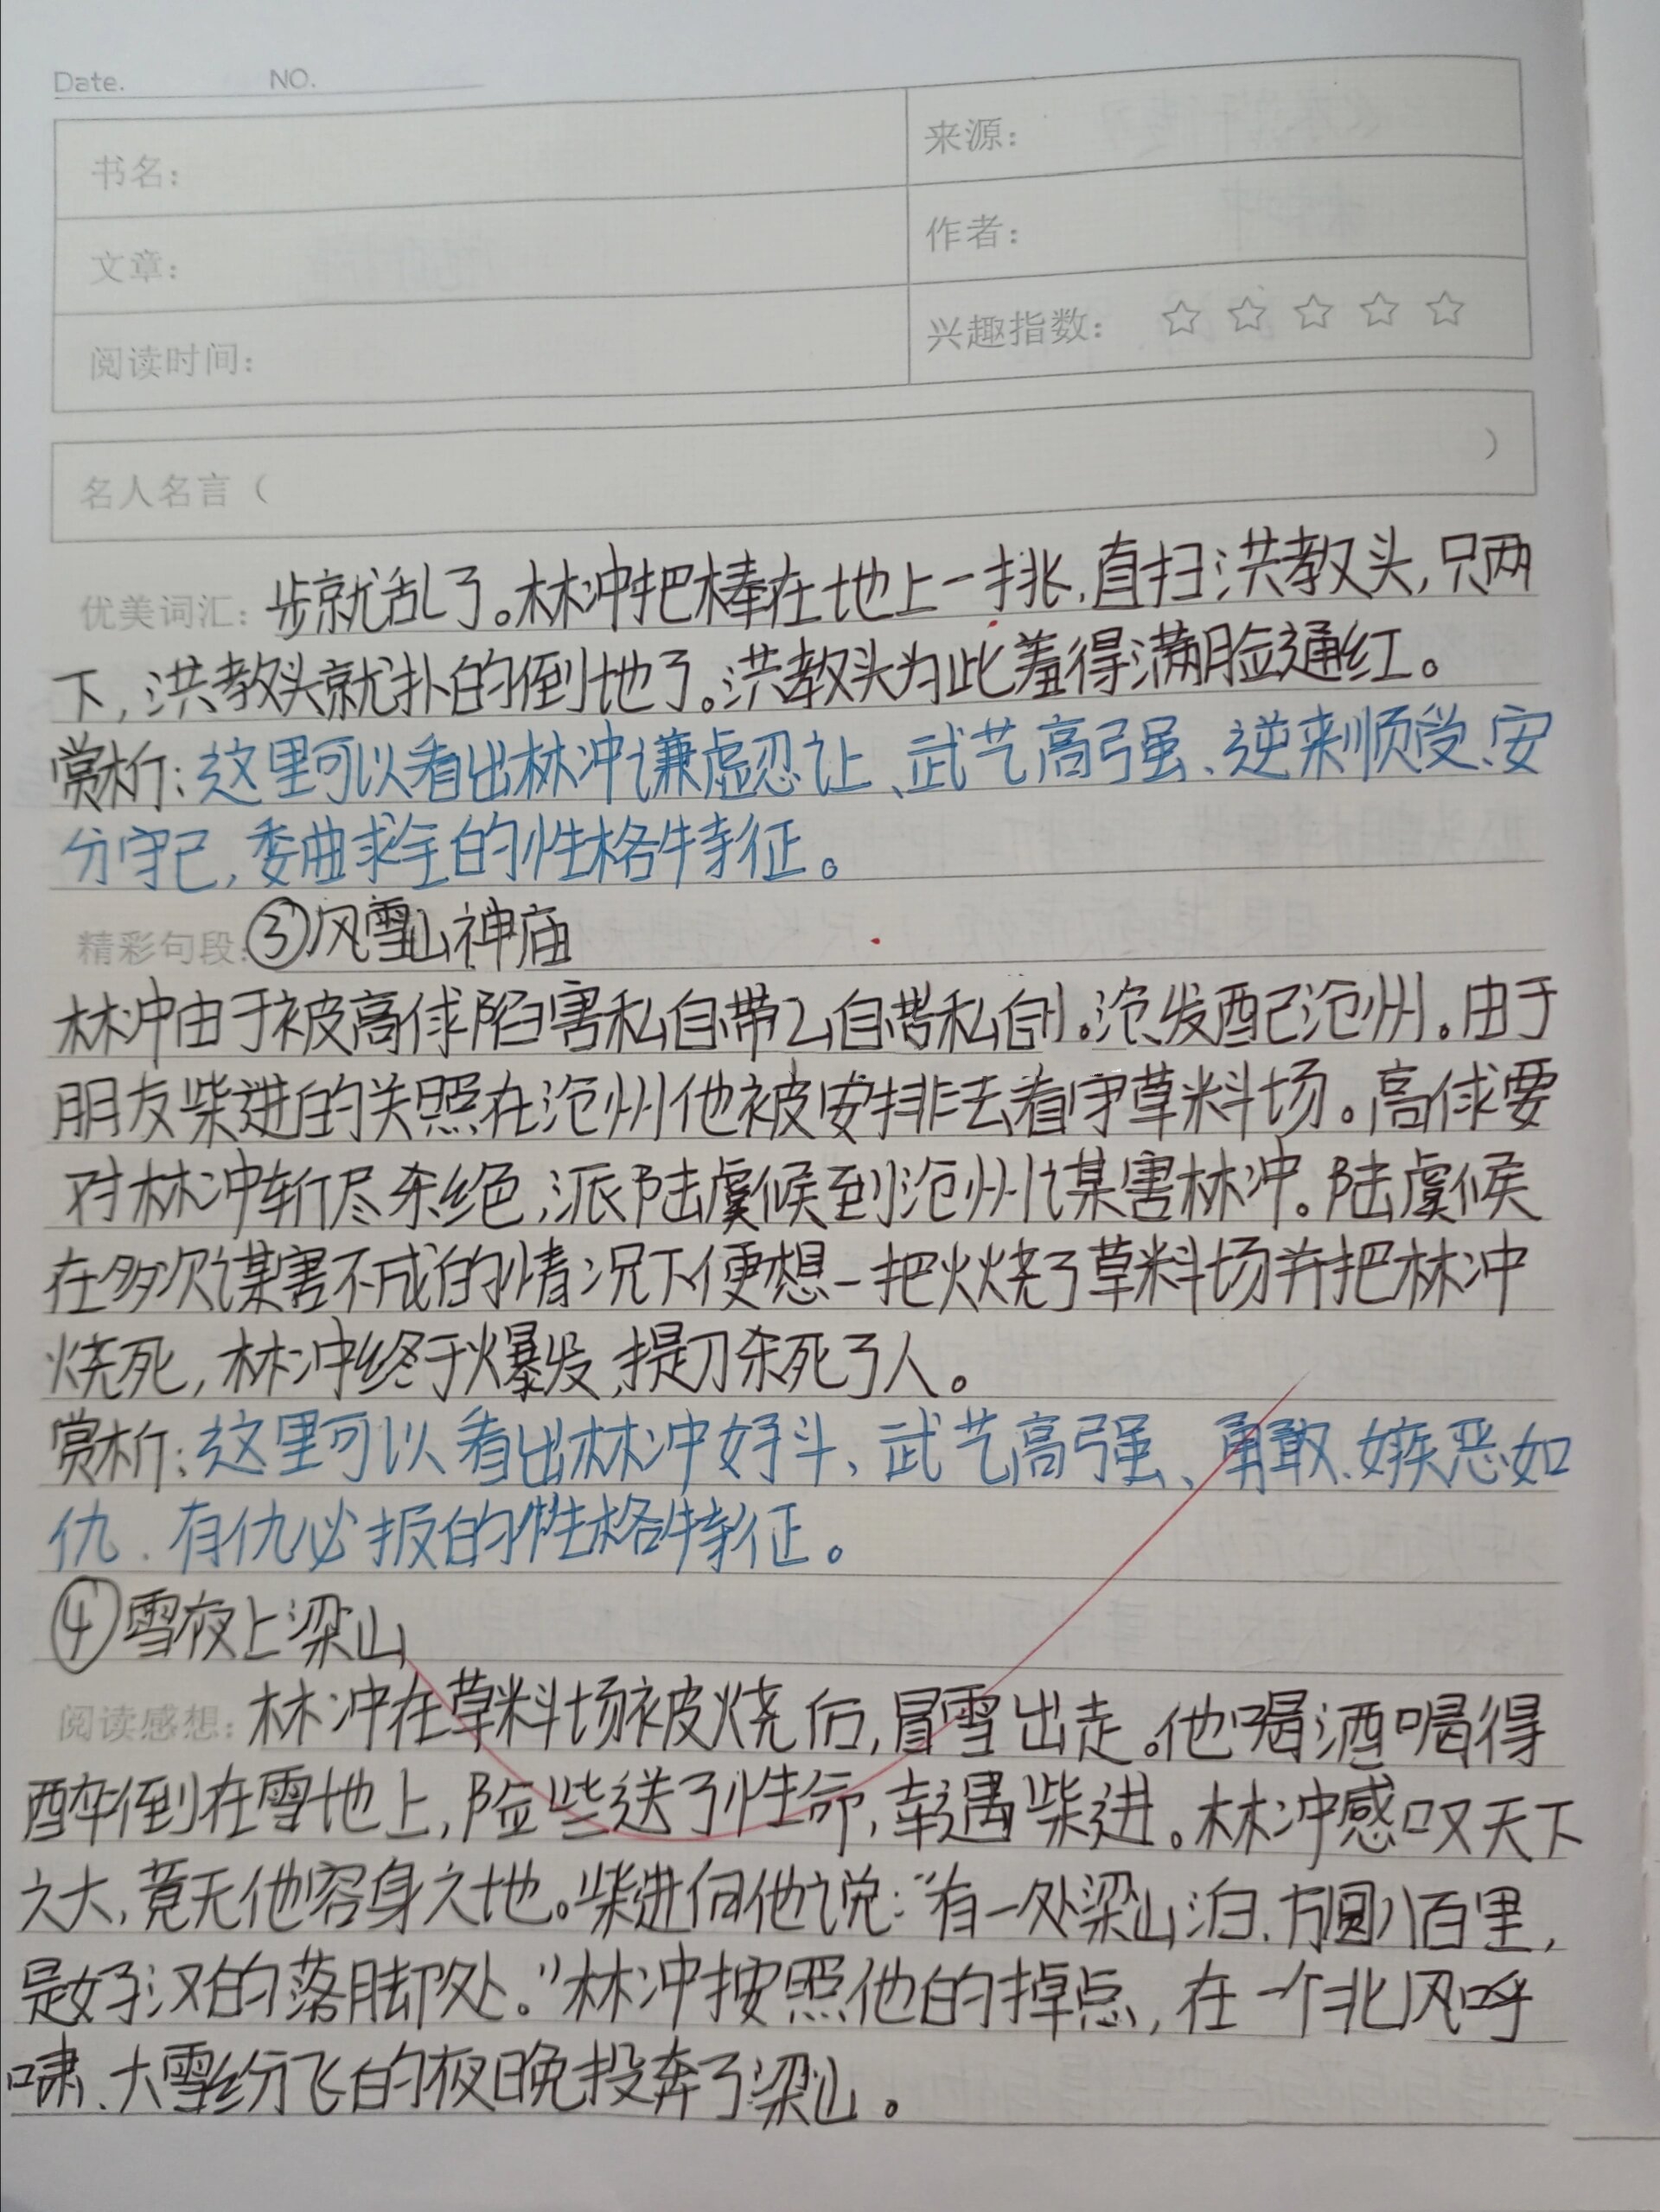 Date. NO.
书名： 来源：
文章： 作者：
阅读时间： 兴趣指数：☆☆☆☆☆
名人名言（ ）
优美词汇：步就乱了。林冲把棒在地上一挑，直扫洪教头，只两
下，洪教头就扑的倒地了。洪教头为此羞得满脸通红。
赏析：这里可以看出林冲谦虚忍让、武艺高强、逆来顺受、安
分守己，委曲求全的性格特征。
精彩句段：③风雪山神庙
林冲由于被高俅陷害私自带 自带私自 。 发配沧州。由于
朋友柴进的关照在沧州他被安排去看守草料场。高俅要
对林冲斩尽杀绝，派陆虞候到沧州谋害林冲。陆虞候
在多次谋害不成的情况下便想一把火烧了草料场并把林冲
烧死，林冲终于爆发，提刀杀死了人。
赏析：这里可以看出林冲好斗、武艺高强、勇敢、嫉恶如
仇、有仇必报的性格特征。
④雪夜上梁山
阅读感想：林冲在草料场被烧后，冒雪出走。他喝酒喝得
醉倒在雪地上，险些送了性命，幸遇柴进。林冲感叹天下
之大，竟无他容身之地。柴进向他说：“有一处梁山泊，方圆八百里，
是好汉的落脚处。”林冲按照他的掉点，在一个北风呼
啸、大雪纷飞的夜晚投奔了梁山。